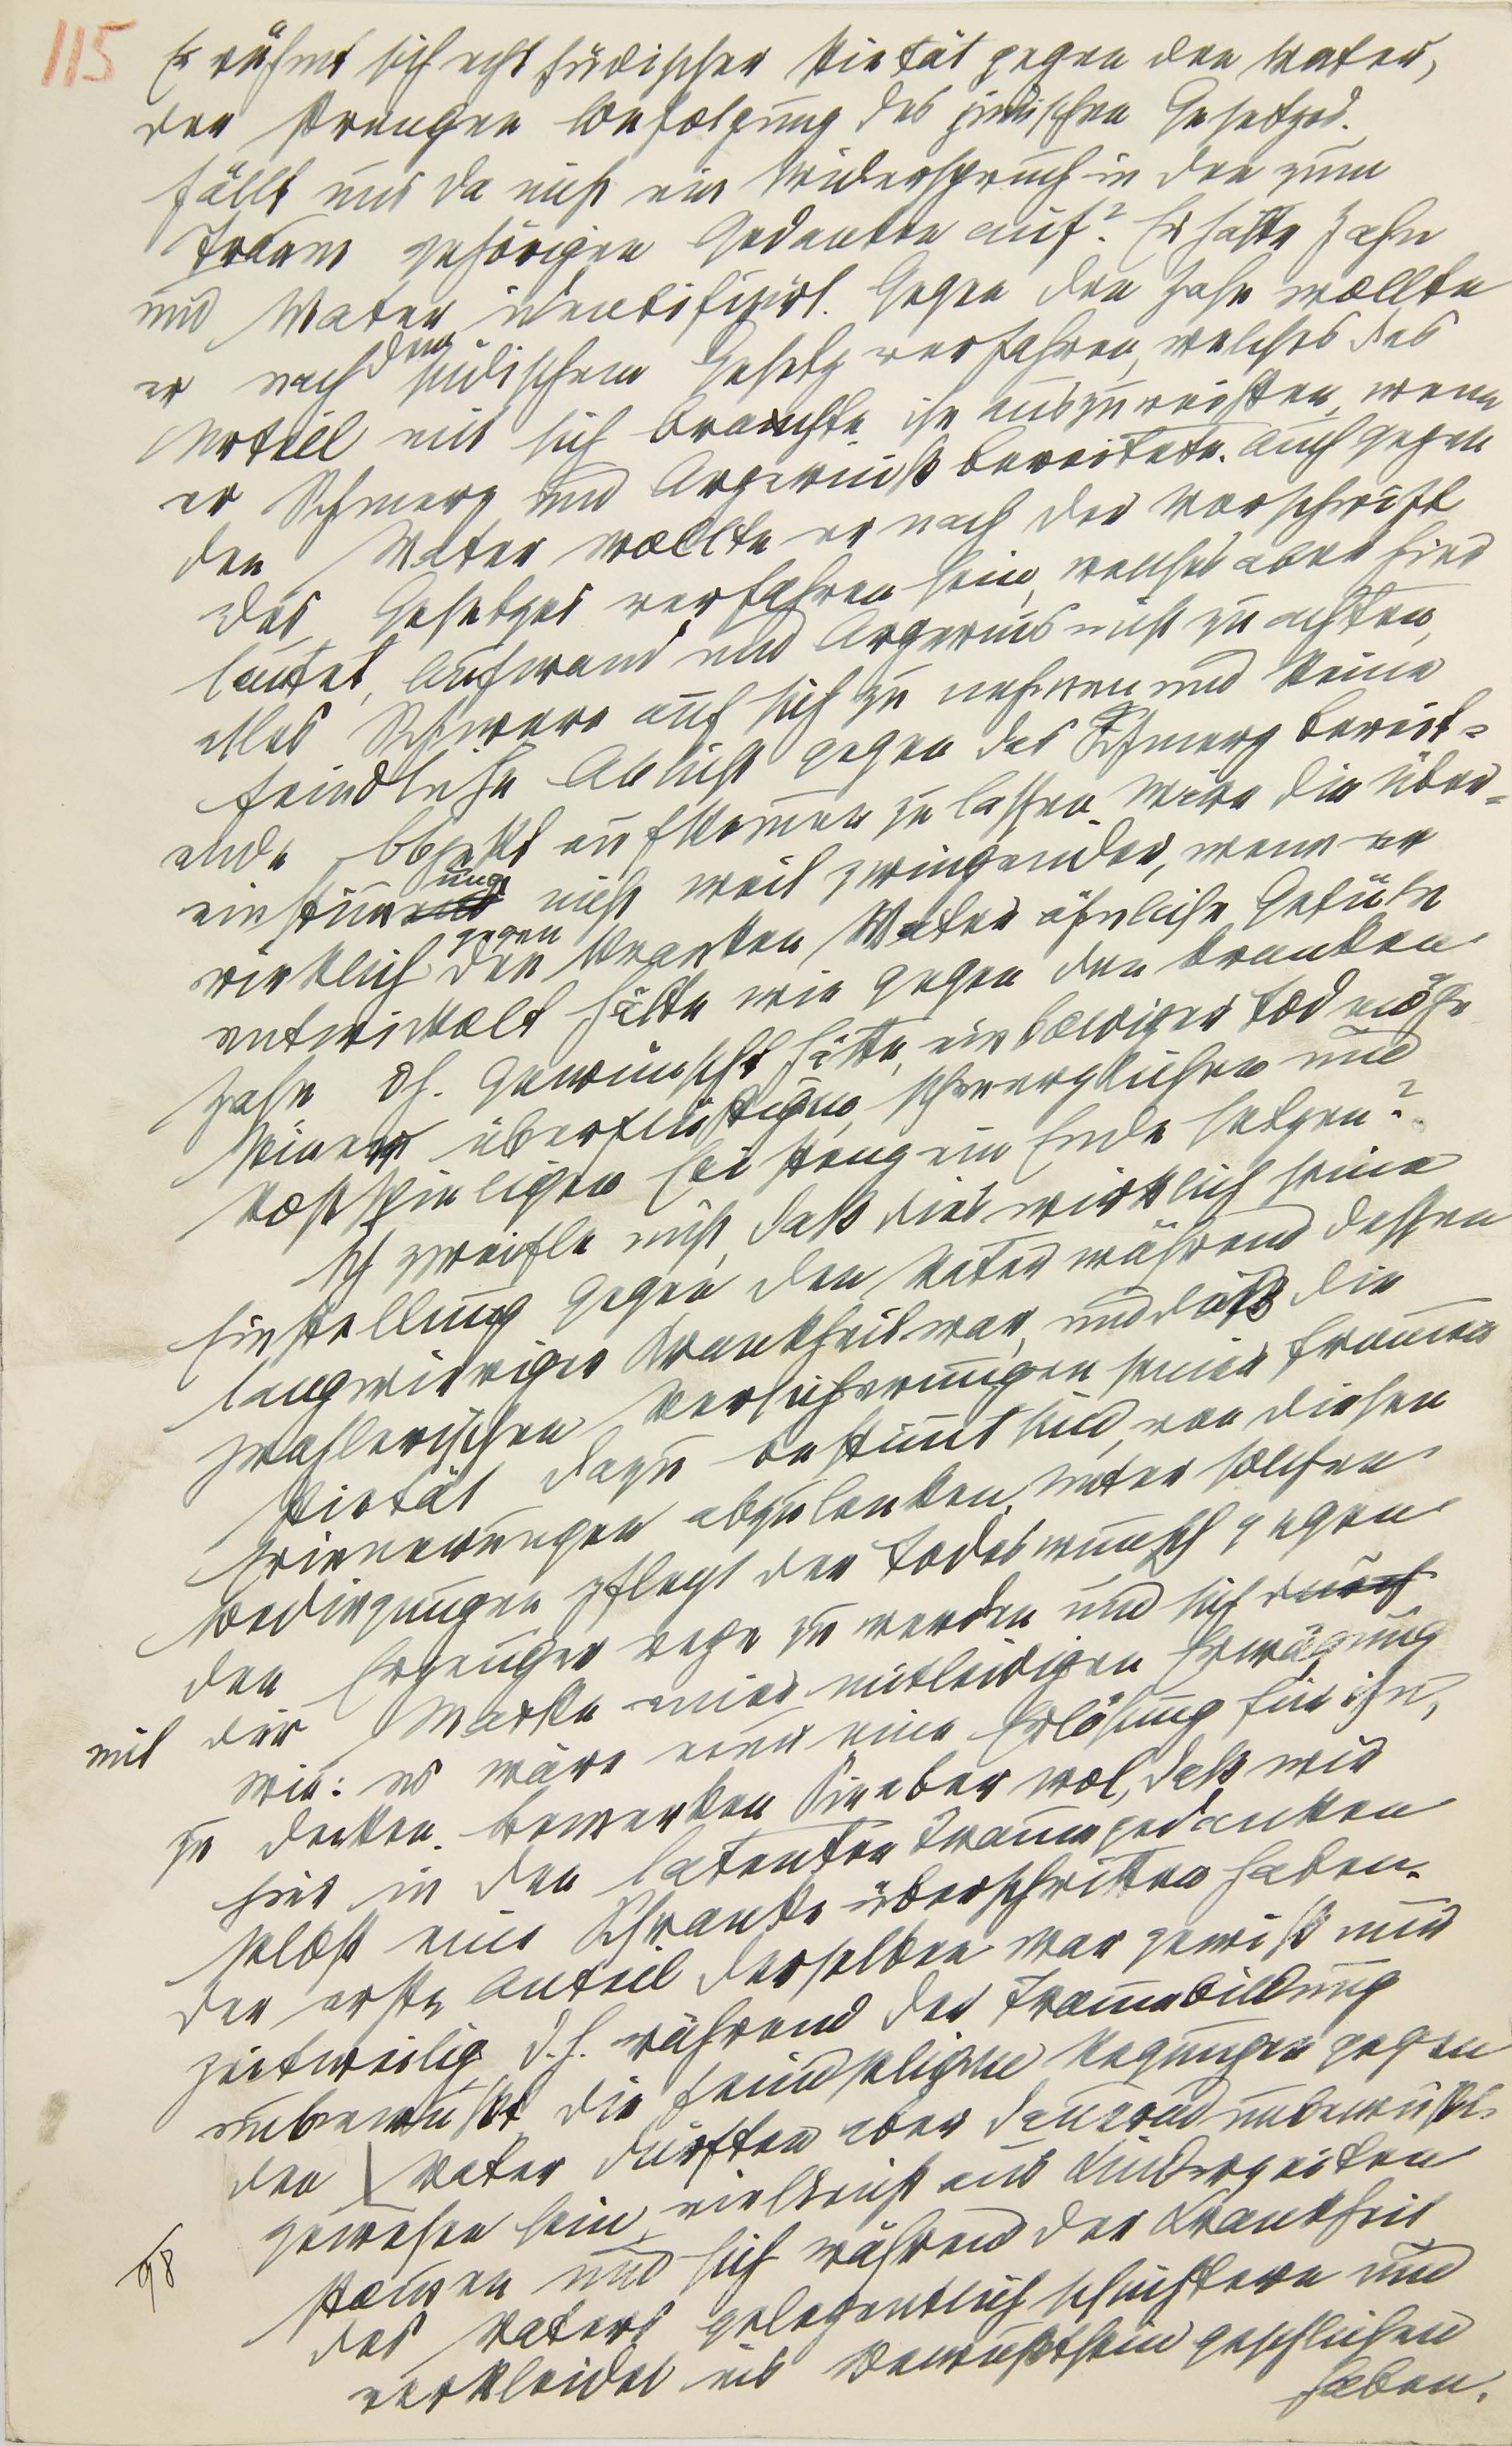 115
Er rühmt sich echt jüdischer Pietät gegen den Vater,
der strengen Befolgung des jüdischen Gesetzes.
Fällt uns da nicht ein Widerspruch in den zum
Traum gehörigen Gedanken auf? Er hatte Zahn
und Vater identifizirt. Gegen den Zahn wollte
er nach dem jüdischem Gesetz verfahren, welches das
Urteil mit sich brachte ihn auszureißen, wenn
er Schmerz und Ärgerniß bereitete. Auch gegen
den Vater wollte er nach der Vorschrift
des Gesetzes verfahren sein, welches aber hier
lautet, Aufwand und Ärgernis nicht zu achten,
alles Schwere auf sich zu nehmen und keine
feindliche Absicht gegen das Schmerz bereit=
ende Objekt aufkommen zu lassen. Wäre die Über=
einstimmung nicht weit zwingender, wenn er
wirklich gegen den kranken Vater ähnliche Gefühle
entwickelt hätte wie gegen den kranken
Zahn dh. gewünscht hätte, ein baldiger Tod möge
seiner überflüssigen, schmerzlichen und
kostspieligen Existenz ein Ende setzen?
Ich zweifle nicht, daß dies wirklich seine
Einstellung gegen den Vater während dessen
langwieriger Krankheit war, und daß die
prahlerischen Versicherungen seiner frommen
Pietät dazu bestimmt sind, von diesen
Erinnerungen abzulenken. Unter solchen
Bedingungen pflegt der Todeswunsch gegen
den Erzeuger rege zu werden und sich durch
mit der Maske einer mitleidigen Erwägung
wie: es wäre nur eine Erlösung für ihn,
zu decken. Bemerken Sie aber wol, daß wir
hier in den latenten Traumgedanken
selbst eine Schranke überschritten haben.
Der erste Anteil derselben war gewiß nur
zeitweilig d.h. während der Traumbildung
unbewußt, die feindseligen Regungen gegen
den Vater dürften aber dauernd unbewußt
gewesen sein, vielleicht aus Kinderzeiten
98
stammen und sich während der Krankheit
des Vaters gelegentlich schüchtern und
verkleidet ins Bewußtsein geschlichen
haben.